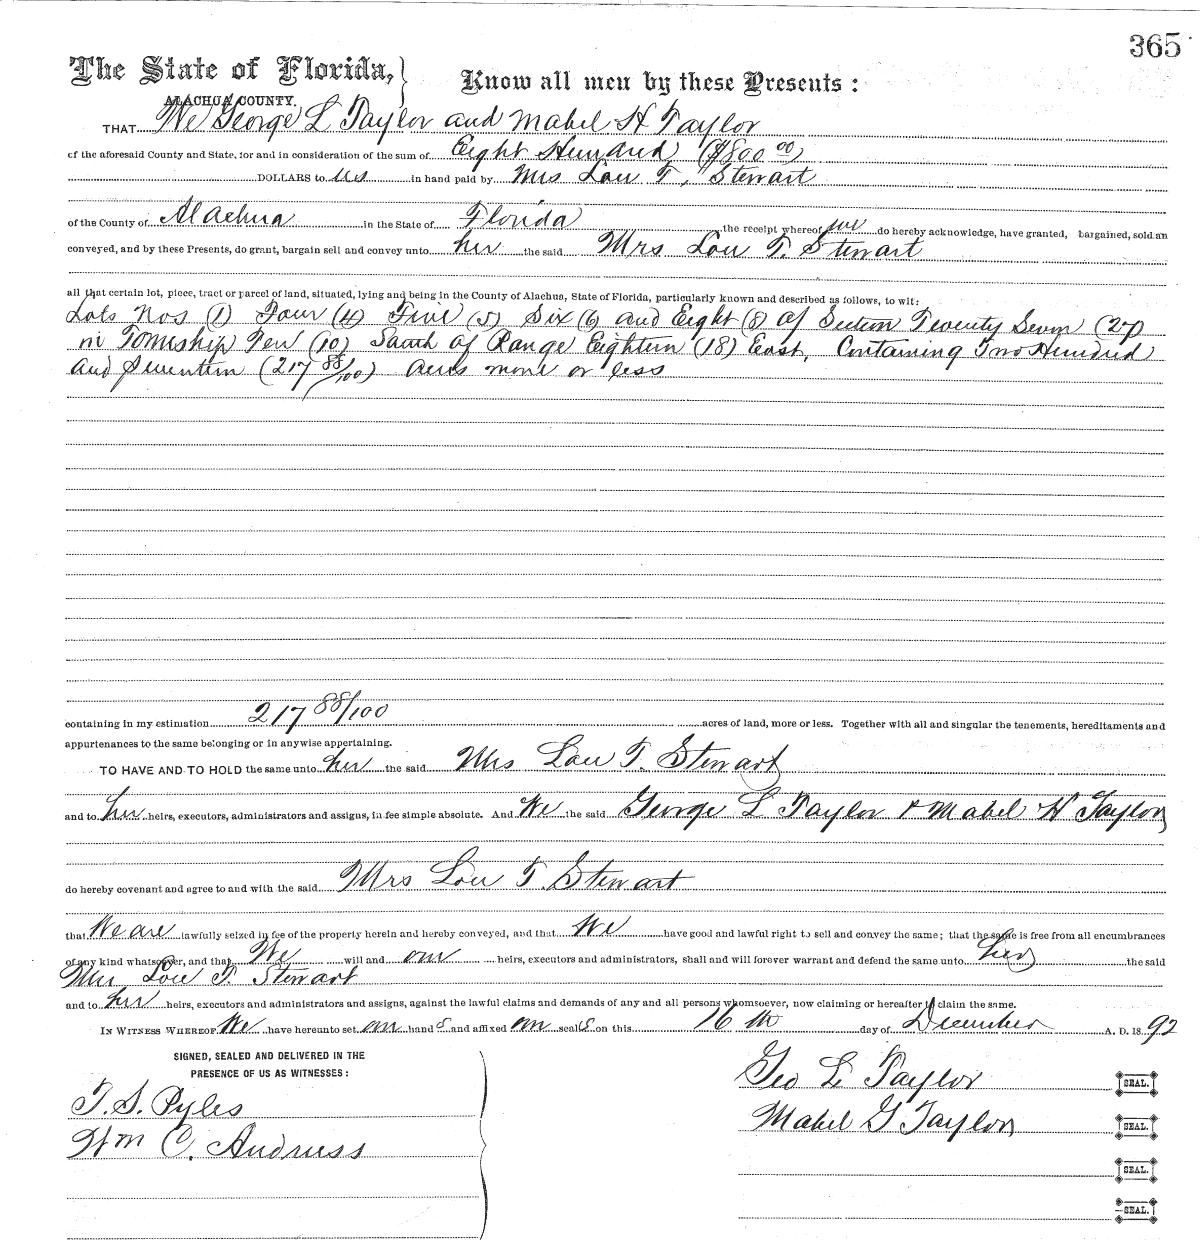 365
The State of Florida, Know all men by these Presents:
ALACHUA COUNTY.
THAT We George L Taylor and Mabel H Taylor
of the aforesaid County and State, for and in consideration of the sum of Eight Hundred ($800 00)
DOLLARS to us in hand paid by Mrs Lou T. Stewart
of the County of Alachua in the State of Florida the receipt whereof we do hereby acknowledge, have granted, bargained, sold an
conveyed, and by these Presents, do grant, bargain sell and convey unto her the said Mrs Lou T. Stewart
all that certain lot, piece, tract or parcel of land, situated, lying and being in the County of Alachua, State of Florida, particularly known and described as follows, to wit:
Lots Nos (1) Four (4) Five (5) Six (6) and Eight (8) of Section Twenty Seven (27)
in Township Ten (10) South of Range Eighteen (18) East, Containing Two Hundred
and Seventeen (217 88/100) acres more or less
containing in my estimation 217 88/100 acres of land, more or less. Together with all and singular the tenements, hereditaments and
appurtenances to the same belonging or in anywise appertaining.
TO HAVE AND TO HOLD the same unto her the said Mrs Lou T. Stewart
and to her heirs, executors, administrators and assigns, in fee simple absolute. And We the said George L Taylor & Mabel H Taylor
do hereby covenant and agree to and with the said Mrs Lou T. Stewart
that We are lawfully seized in fee of the property herein and hereby conveyed, and that We have good and lawful right to sell and convey the same; that the same is free from all encumbrances
of any kind whatsoever, and that We will and our heirs, executors and administrators, shall and will forever warrant and defend the same unto her the said
Mrs Lou T. Stewart
and to her heirs, executors and administrators and assigns, against the lawful claims and demands of any and all persons whomsoever, now claiming or hereafter to claim the same.
IN WITNESS WHEREOF We have hereunto set our hand s and affixed our seal s on this 16 th day of December A. D. 18 92
SIGNED, SEALED AND DELIVERED IN THE
PRESENCE OF US AS WITNESSES:
Geo L Taylor SEAL.
T. S. Pyles
Mabel G Taylor SEAL.
Wm C. Andruss
SEAL.
SEAL.